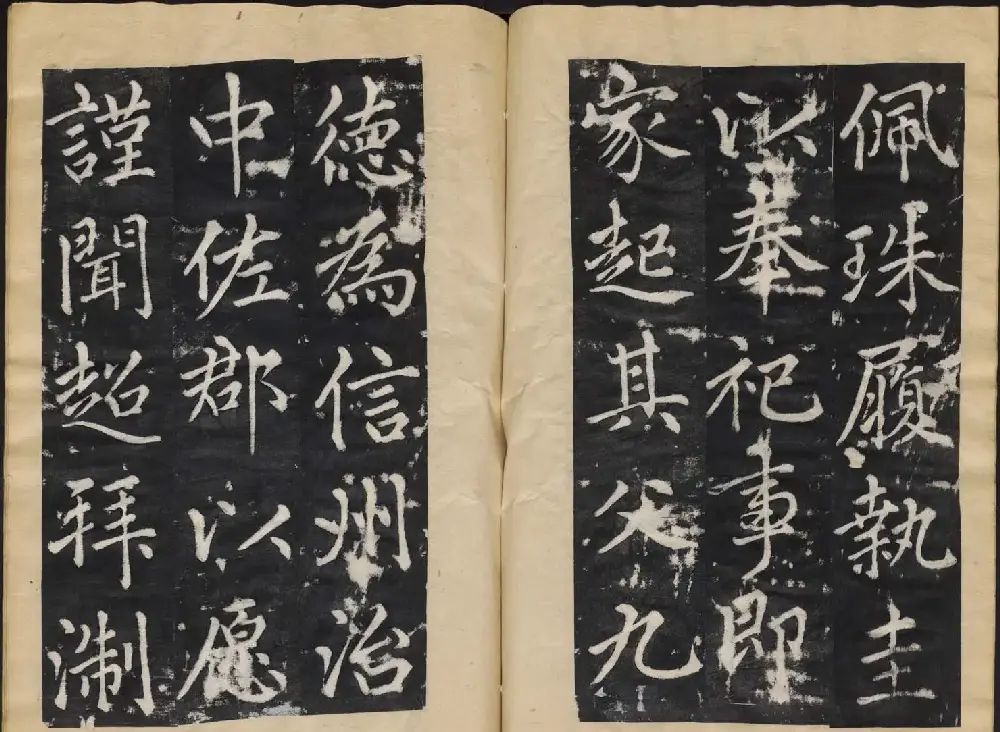 佩珠履執圭
以奉祀事即
家起其父九
德為信州治
中佐郡以愿
謹聞超拜淛